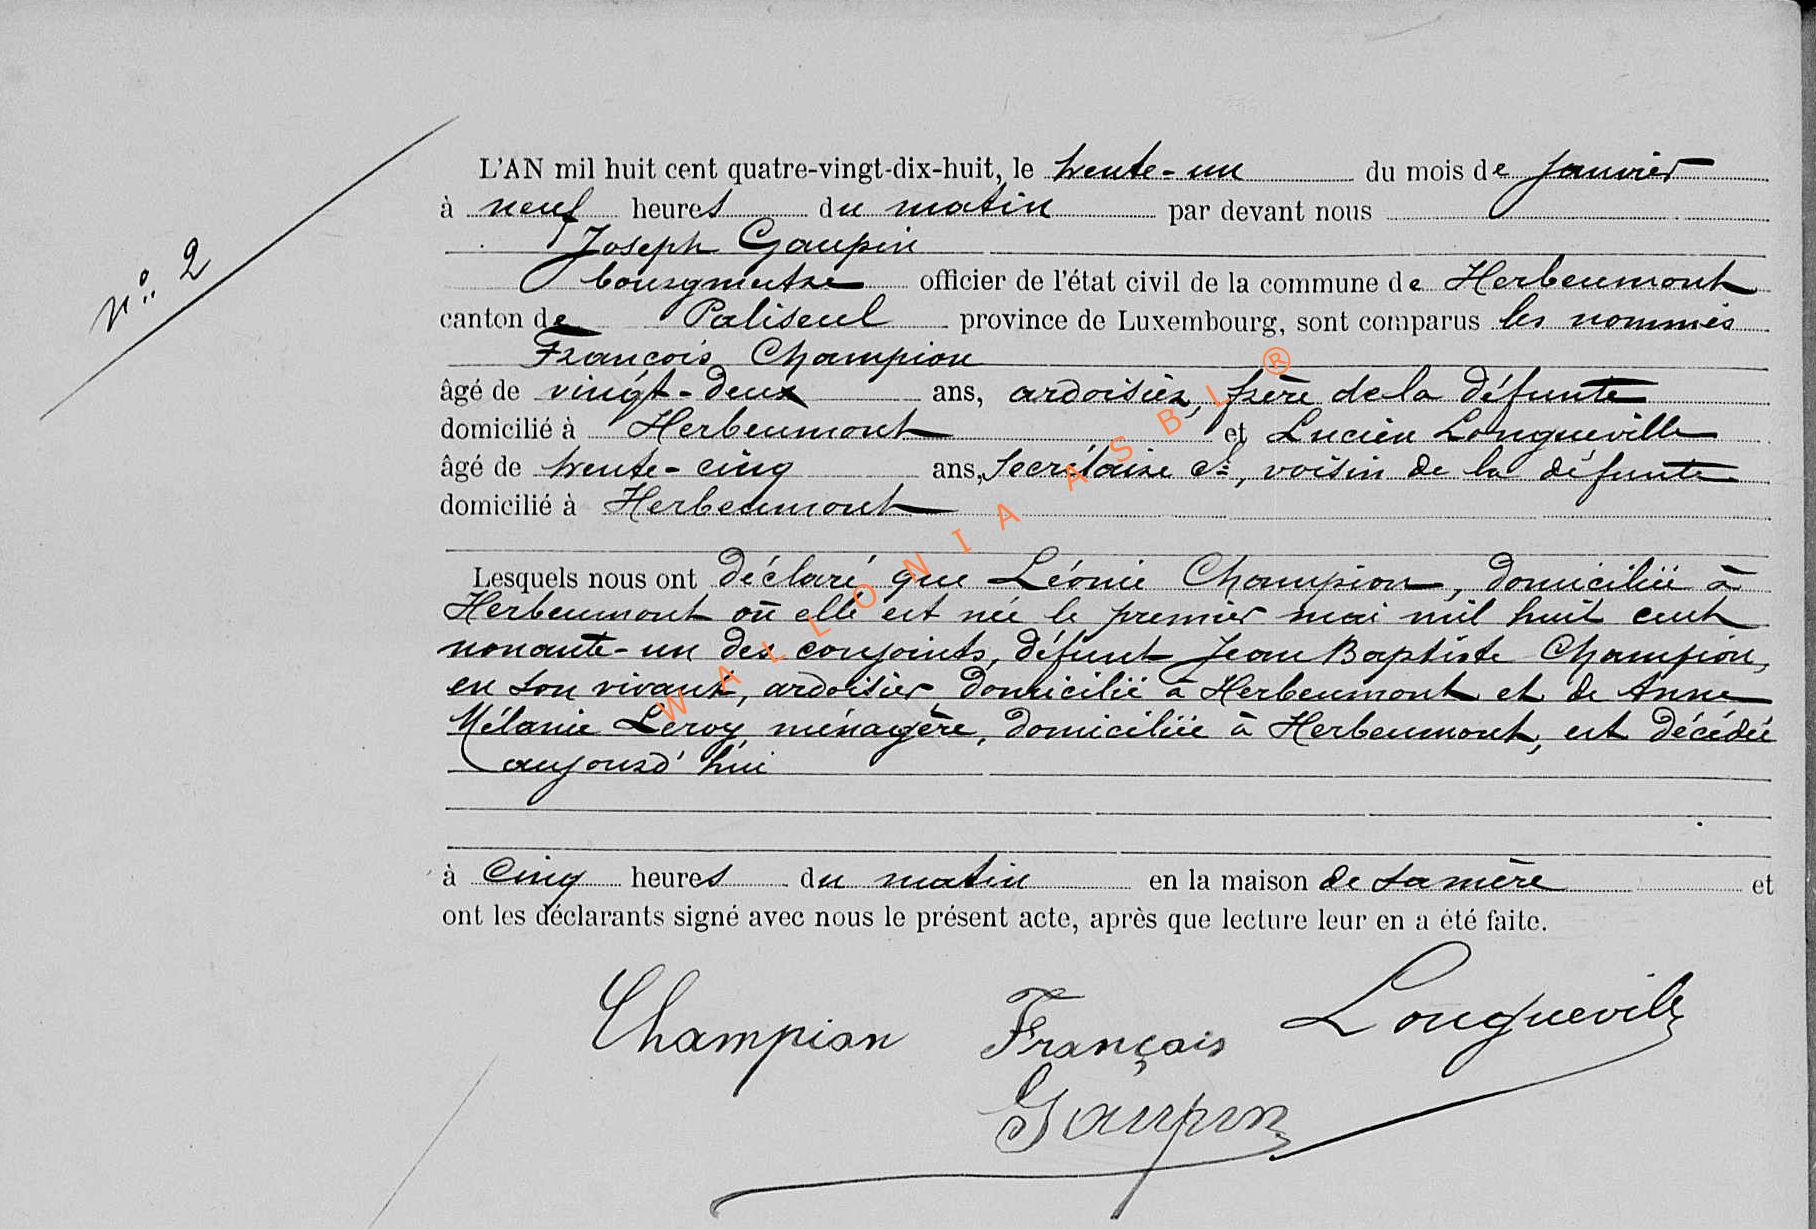 N° 2
L'AN mil huit cent quatre-vingt-dix-huit, le trente-un du mois de janvier
à neuf heures du matin par devant nous
Joseph Gaupin
bourgmestre officier de l'état civil de la commune de Herbeumont
canton de Paliseul province de Luxembourg, sont comparus les nommés
François Champion
âgé de vingt-deux ans, ardoisier, frère de la défunte
domicilié à Herbeumont et Lucien Longueville
âgé de trente-cinq ans, secrétaire cl, voisin de la défunte
domicilié à Herbeumont
Lesquels nous ont déclaré que Léonie Champion, domiciliée à
Herbeumont où elle est née le premier mai mil huit cent
nonante-un des conjoints, défunt Jean Baptiste Champion,
en son vivant, ardoisier, domicilié à Herbeumont et de Anne
Mélanie Leroy ménagère, domiciliée à Herbeumont, est décédée
aujourd'hui
à cinq heures du matin en la maison de sa mère et
ont les déclarants signé avec nous le présent acte, après que lecture leur en a été faite.
Champion François Longueville
Gaupin
WALLONIA ASBL ®